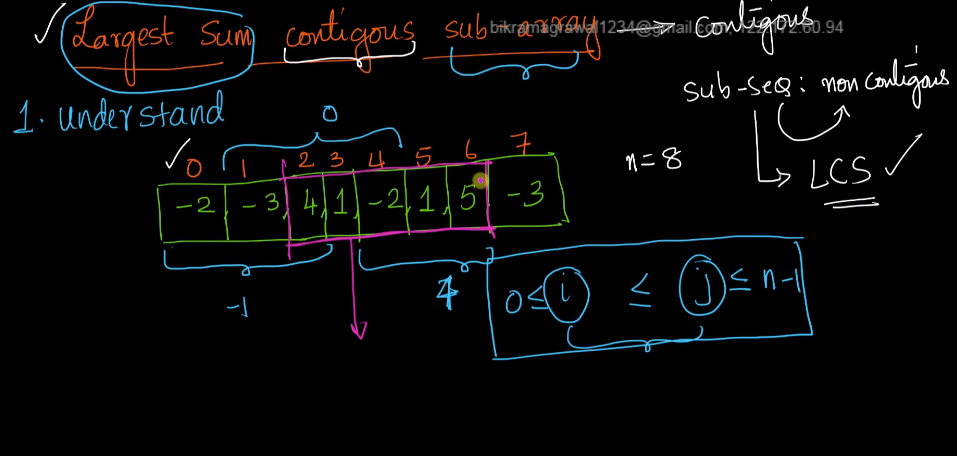 Largest Sum contigous sub array → contigous
bikramagrawal1234@gmail.com, 122.172.60.94
sub-seq: non contigous
1. understand
0
n=8
LCS
0 1 2 3 4 5 6 7
-2 -3 4 1 -2 1 5 -3
-1
4
0 ≤ i ≤ j ≤ n-1